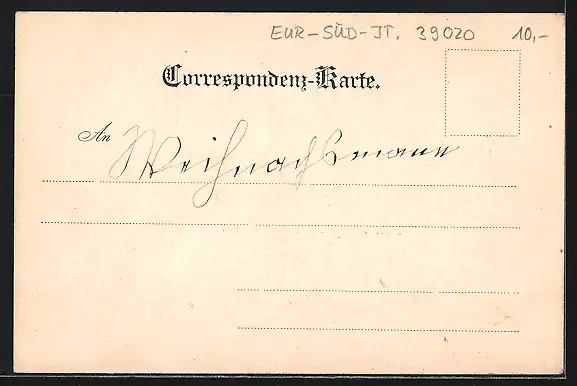 EUR-SÜD-IT. 39020 10,-
Correspondenz-Karte.
An Weihnachsmann